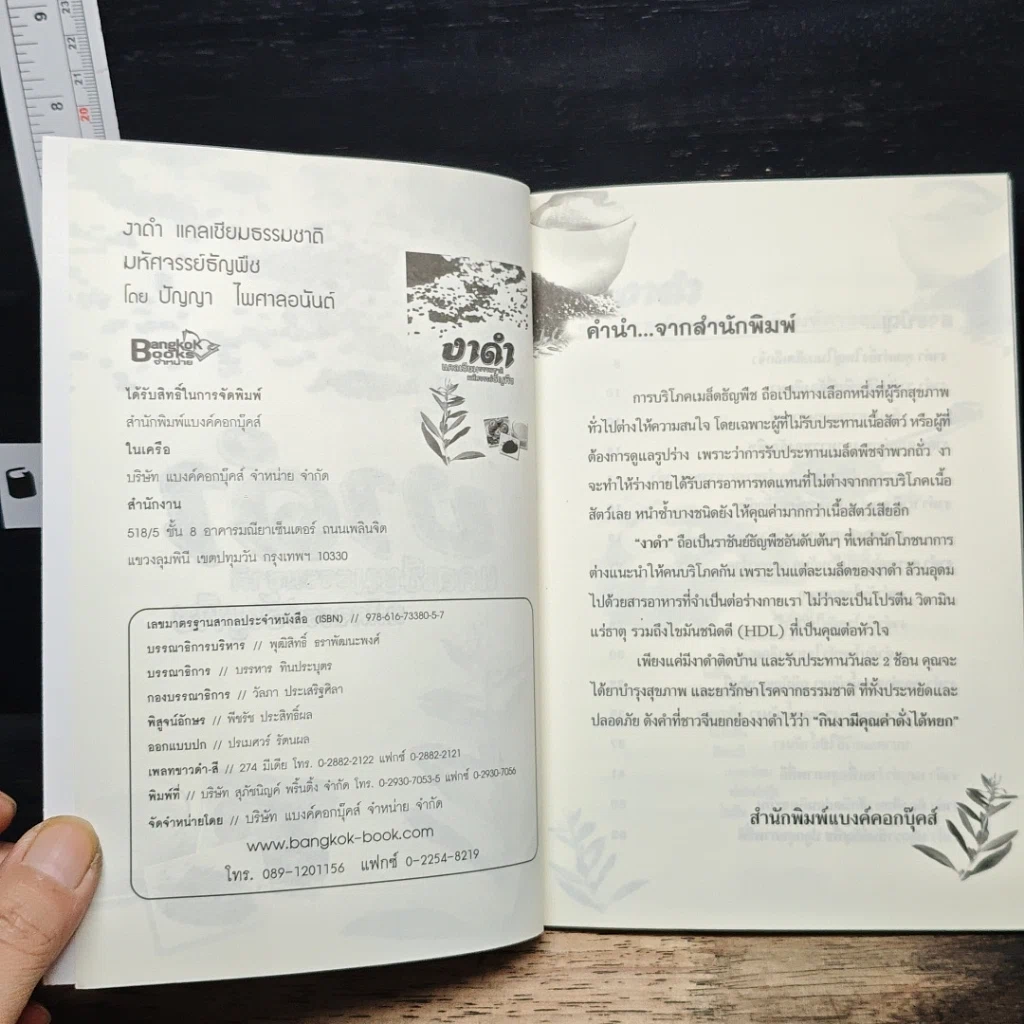 9
8
23
22
21
20
งาดำ แคลเซียมธรรมชาติ
มหัศจรรย์ธัญพืช
โดย ปัญญา ไพศาลอนันต์
Bangkok
Books
จำหน่าย
งาดำ
ได้รับสิทธิ์ในการจัดพิมพ์
สำนักพิมพ์แบงค์คอกบุ๊คส์
ในเครือ
บริษัท แบงค์คอกบุ๊คส์ จำหน่าย จำกัด
สำนักงาน
518/5 ชั้น 8 อาคารมณียาเซ็นเตอร์ ถนนเพลินจิต
แขวงลุมพินี เขตปทุมวัน กรุงเทพฯ 10330
เลขมาตรฐานสากลประจำหนังสือ (ISBN) // 978-616-73380-5-7
บรรณาธิการบริหาร // พุฒิสิทธิ์ ธราพัฒนะพงศ์
บรรณาธิการ // บรรหาร ทินประบุตร
กองบรรณาธิการ // วัลภา ประเสริฐศิลา
พิสูจน์อักษร // พีชรัช ประสิทธิ์ผล
ออกแบบปก // ปรเมศวร์ รัตนผล
เพลทขาวดำ-สี // 274 มีเดีย โทร. 0-2882-2122 แฟกซ์ 0-2882-2121
พิมพ์ที่ // บริษัท สุภัชนิญค์ พริ้นติ้ง จำกัด โทร. 0-2930-7053-5 แฟกซ์ 0-2930-7056
จัดจำหน่ายโดย // บริษัท แบงค์คอกบุ๊คส์ จำหน่าย จำกัด
www.bangkok-book.com
โทร. 089-1201156 แฟกซ์ 0-2254-8219
คำนำ...จากสำนักพิมพ์
การบริโภคเมล็ดธัญพืช ถือเป็นทางเลือกหนึ่งที่ผู้รักสุขภาพ
ทั่วไปต่างให้ความสนใจ โดยเฉพาะผู้ที่ไม่รับประทานเนื้อสัตว์ หรือผู้ที่
ต้องการดูแลรูปร่าง เพราะว่าการรับประทานเมล็ดพืชจำพวกถั่ว งา
จะทำให้ร่างกายได้รับสารอาหารทดแทนที่ไม่ต่างจากการบริโภคเนื้อ
สัตว์เลย หนำซ้ำบางชนิดยังให้คุณค่ามากกว่าเนื้อสัตว์เสียอีก
"งาดำ" ถือเป็นราชันย์ธัญพืชอันดับต้นๆ ที่เหล่านักโภชนาการ
ต่างแนะนำให้คนบริโภคกัน เพราะในแต่ละเมล็ดของงาดำ ล้วนอุดม
ไปด้วยสารอาหารที่จำเป็นต่อร่างกายเรา ไม่ว่าจะเป็นโปรตีน วิตามิน
แร่ธาตุ รวมถึงไขมันชนิดดี (HDL) ที่เป็นคุณต่อหัวใจ
เพียงแค่มีงาดำติดบ้าน และรับประทานวันละ 2 ช้อน คุณจะ
ได้ยาบำรุงสุขภาพ และยารักษาโรคจากธรรมชาติ ที่ทั้งประหยัดและ
ปลอดภัย ดังคำที่ชาวจีนยกย่องงาดำไว้ว่า "กินงามีคุณค่าดั่งได้หยก"
สำนักพิมพ์แบงค์คอกบุ๊คส์